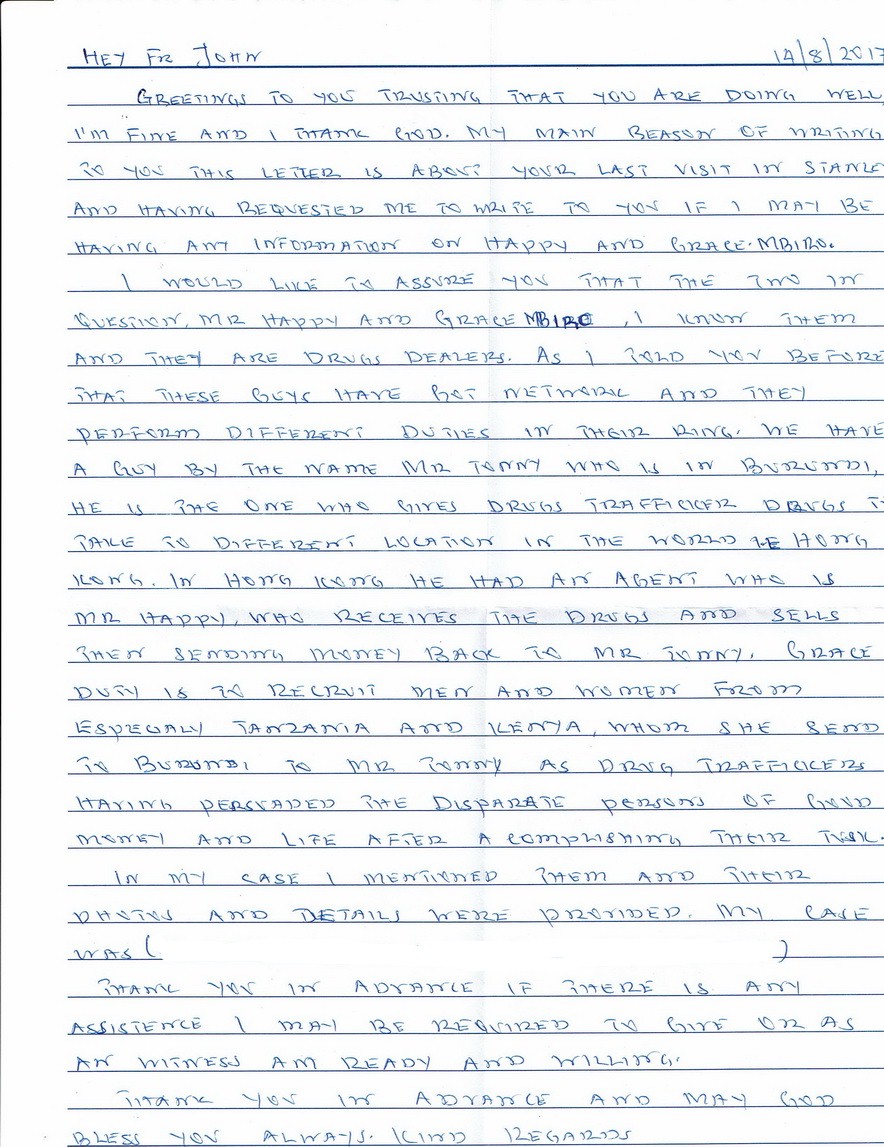 HEY FR JOHN 14/8/2017
GREETINGS TO YOU TRUSTING THAT YOU ARE DOING WELL
I'M FINE AND I THANK GOD. MY MAIN REASON OF WRITING
TO YOU THIS LETTER IS ABOUT YOUR LAST VISIT IN STANLE
AND HAVING REQUESTED ME TO WRITE TO YOU IF I MAY BE
HAVING ANY INFORMATION ON HAPPY AND GRACE.MBIRO.
I WOULD LIKE TO ASSURE YOU THAT THE TWO IN
QUESTION, MR HAPPY AND GRACE MBIRO, I KNOW THEM
AND THEY ARE DRUGS DEALERS. AS I TOLD YOU BEFORE
THAT THESE GUYS HAVE GOT NETWORK AND THEY
PERFORM DIFFERENT DUTIES IN THEIR RING. WE HAVE
A GUY BY THE NAME MR TONNY WHO IS IN BURUNDI,
HE IS THE ONE WHO GIVES DRUGS TRAFFICKER DRUGS T
TAKE TO DIFFERENT LOCATION IN THE WORLD I.E HONG
KONG. IN HONG KONG HE HAD AN AGENT WHO IS
MR HAPPY, WHO RECEIVES THE DRUGS AND SELLS
THEN SENDING MONEY BACK TO MR TONNY. GRACE
DUTY IS TO RECRUIT MEN AND WOMEN FROM
ESPECIALY TANZANIA AND KENYA, WHOM SHE SEND
TO BURUNDI TO MR TONNY AS DRUG TRAFFICKERS
HAVING PERSUADED THE DISPARATE PERSONS OF GOOD
MONEY AND LIFE AFTER ACOMPLISHING THEIR TUSK.
IN MY CASE I MENTIONED THEM AND THEIR
PHOTOS AND DETAILS WERE PROVIDED. MY CASE
WAS ( )
THANK YOU IN ADVANCE IF THERE IS ANY
ASSISTENCE I MAY BE REQUIRED TO GIVE OR AS
AN WITNESS AM READY AND WILLING.
THANK YOU IN ADVANCE AND MAY GOD
BLESS YOU ALWAYS. KIND REGARDS